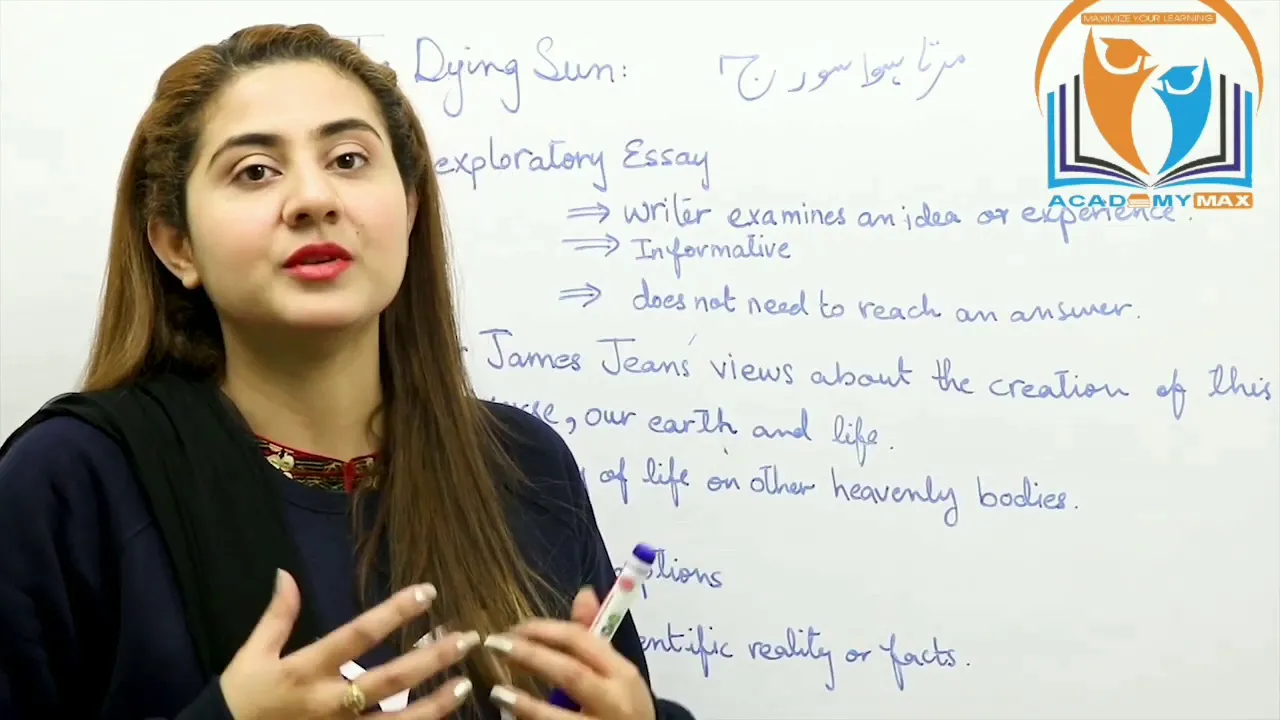 MAXIMIZE YOUR LEARNING
ACADEMY MAX
Dying Sun: مرتا ہوا سورج
exploratory Essay
⇒ writer examines an idea or experience.
⇒ Informative
⇒ does not need to reach an answer.
James Jeans' views about the creation of this
, our earth and life.
of life on other heavenly bodies.
reality or facts.